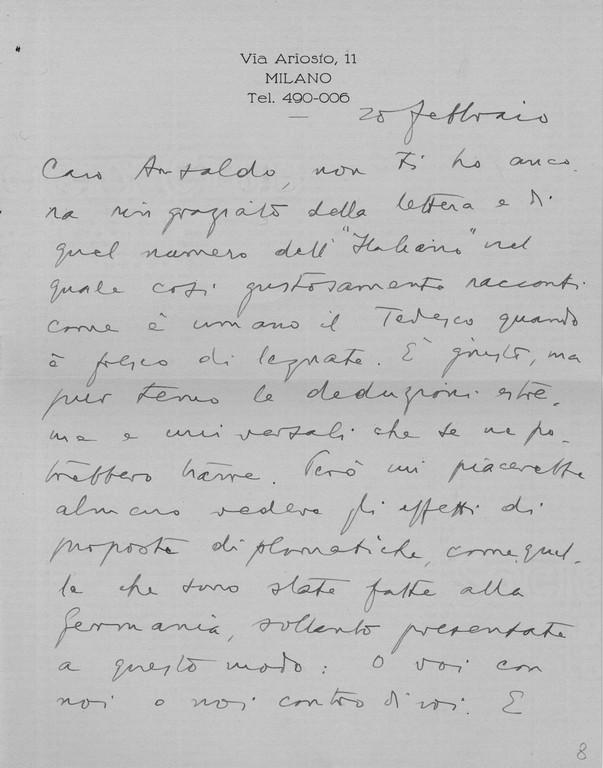 Via Ariosto, 11
MILANO
Tel. 490-006
20 febbraio
Caro Ansaldo, non ti ho anco-
ra ringraziato della lettera e di
quel numero dell'"Italiano" nel
quale così gustosamente racconti
come è umano il Tedesco quando
è fresco di legnate. È giusto, ma
pur temo le deduzioni estre-
me e universali che se ne po-
trebbero trarre. Però mi piacerebbe
almeno vedere gli effetti di
proposte diplomatiche, come quel-
le che sono state fatte alla
Germania, soltanto presentate
a questo modo: O voi con
noi o noi contro di voi. E
8